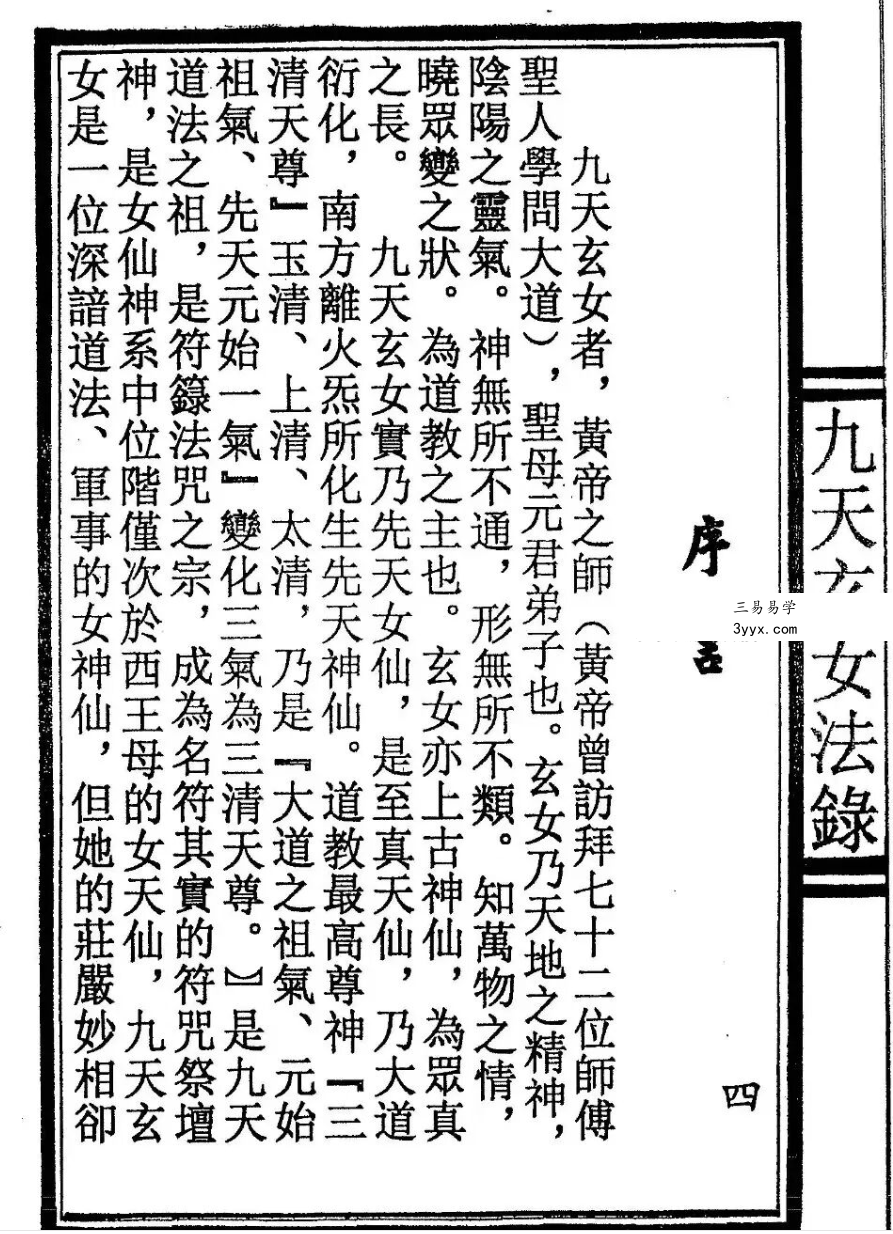 九天玄女法錄
序言
四
九天玄女者，黃帝之師（黃帝曾訪拜七十二位師傅
聖人學問大道），聖母元君弟子也。玄女乃天地之精神，
陰陽之靈氣。神無所不通，形無所不類。知萬物之情，
曉眾變之狀。為道教之主也。玄女亦上古神仙，為眾真
之長。　九天玄女實乃先天女仙，是至真天仙，乃大道
衍化，南方離火炁所化生先天神仙。道教最高尊神『三
清天尊』玉清、上清、太清，乃是『大道之祖氣、元始
祖氣、先天元始一氣』變化三氣為三清天尊。】是九天
道法之祖，是符籙法咒之宗，成為名符其實的符咒祭壇
神，是女仙神系中位階僅次於西王母的女天仙，九天玄
女是一位深諳道法、軍事的女神仙，但她的莊嚴妙相卻
三易易学
3yyx.com